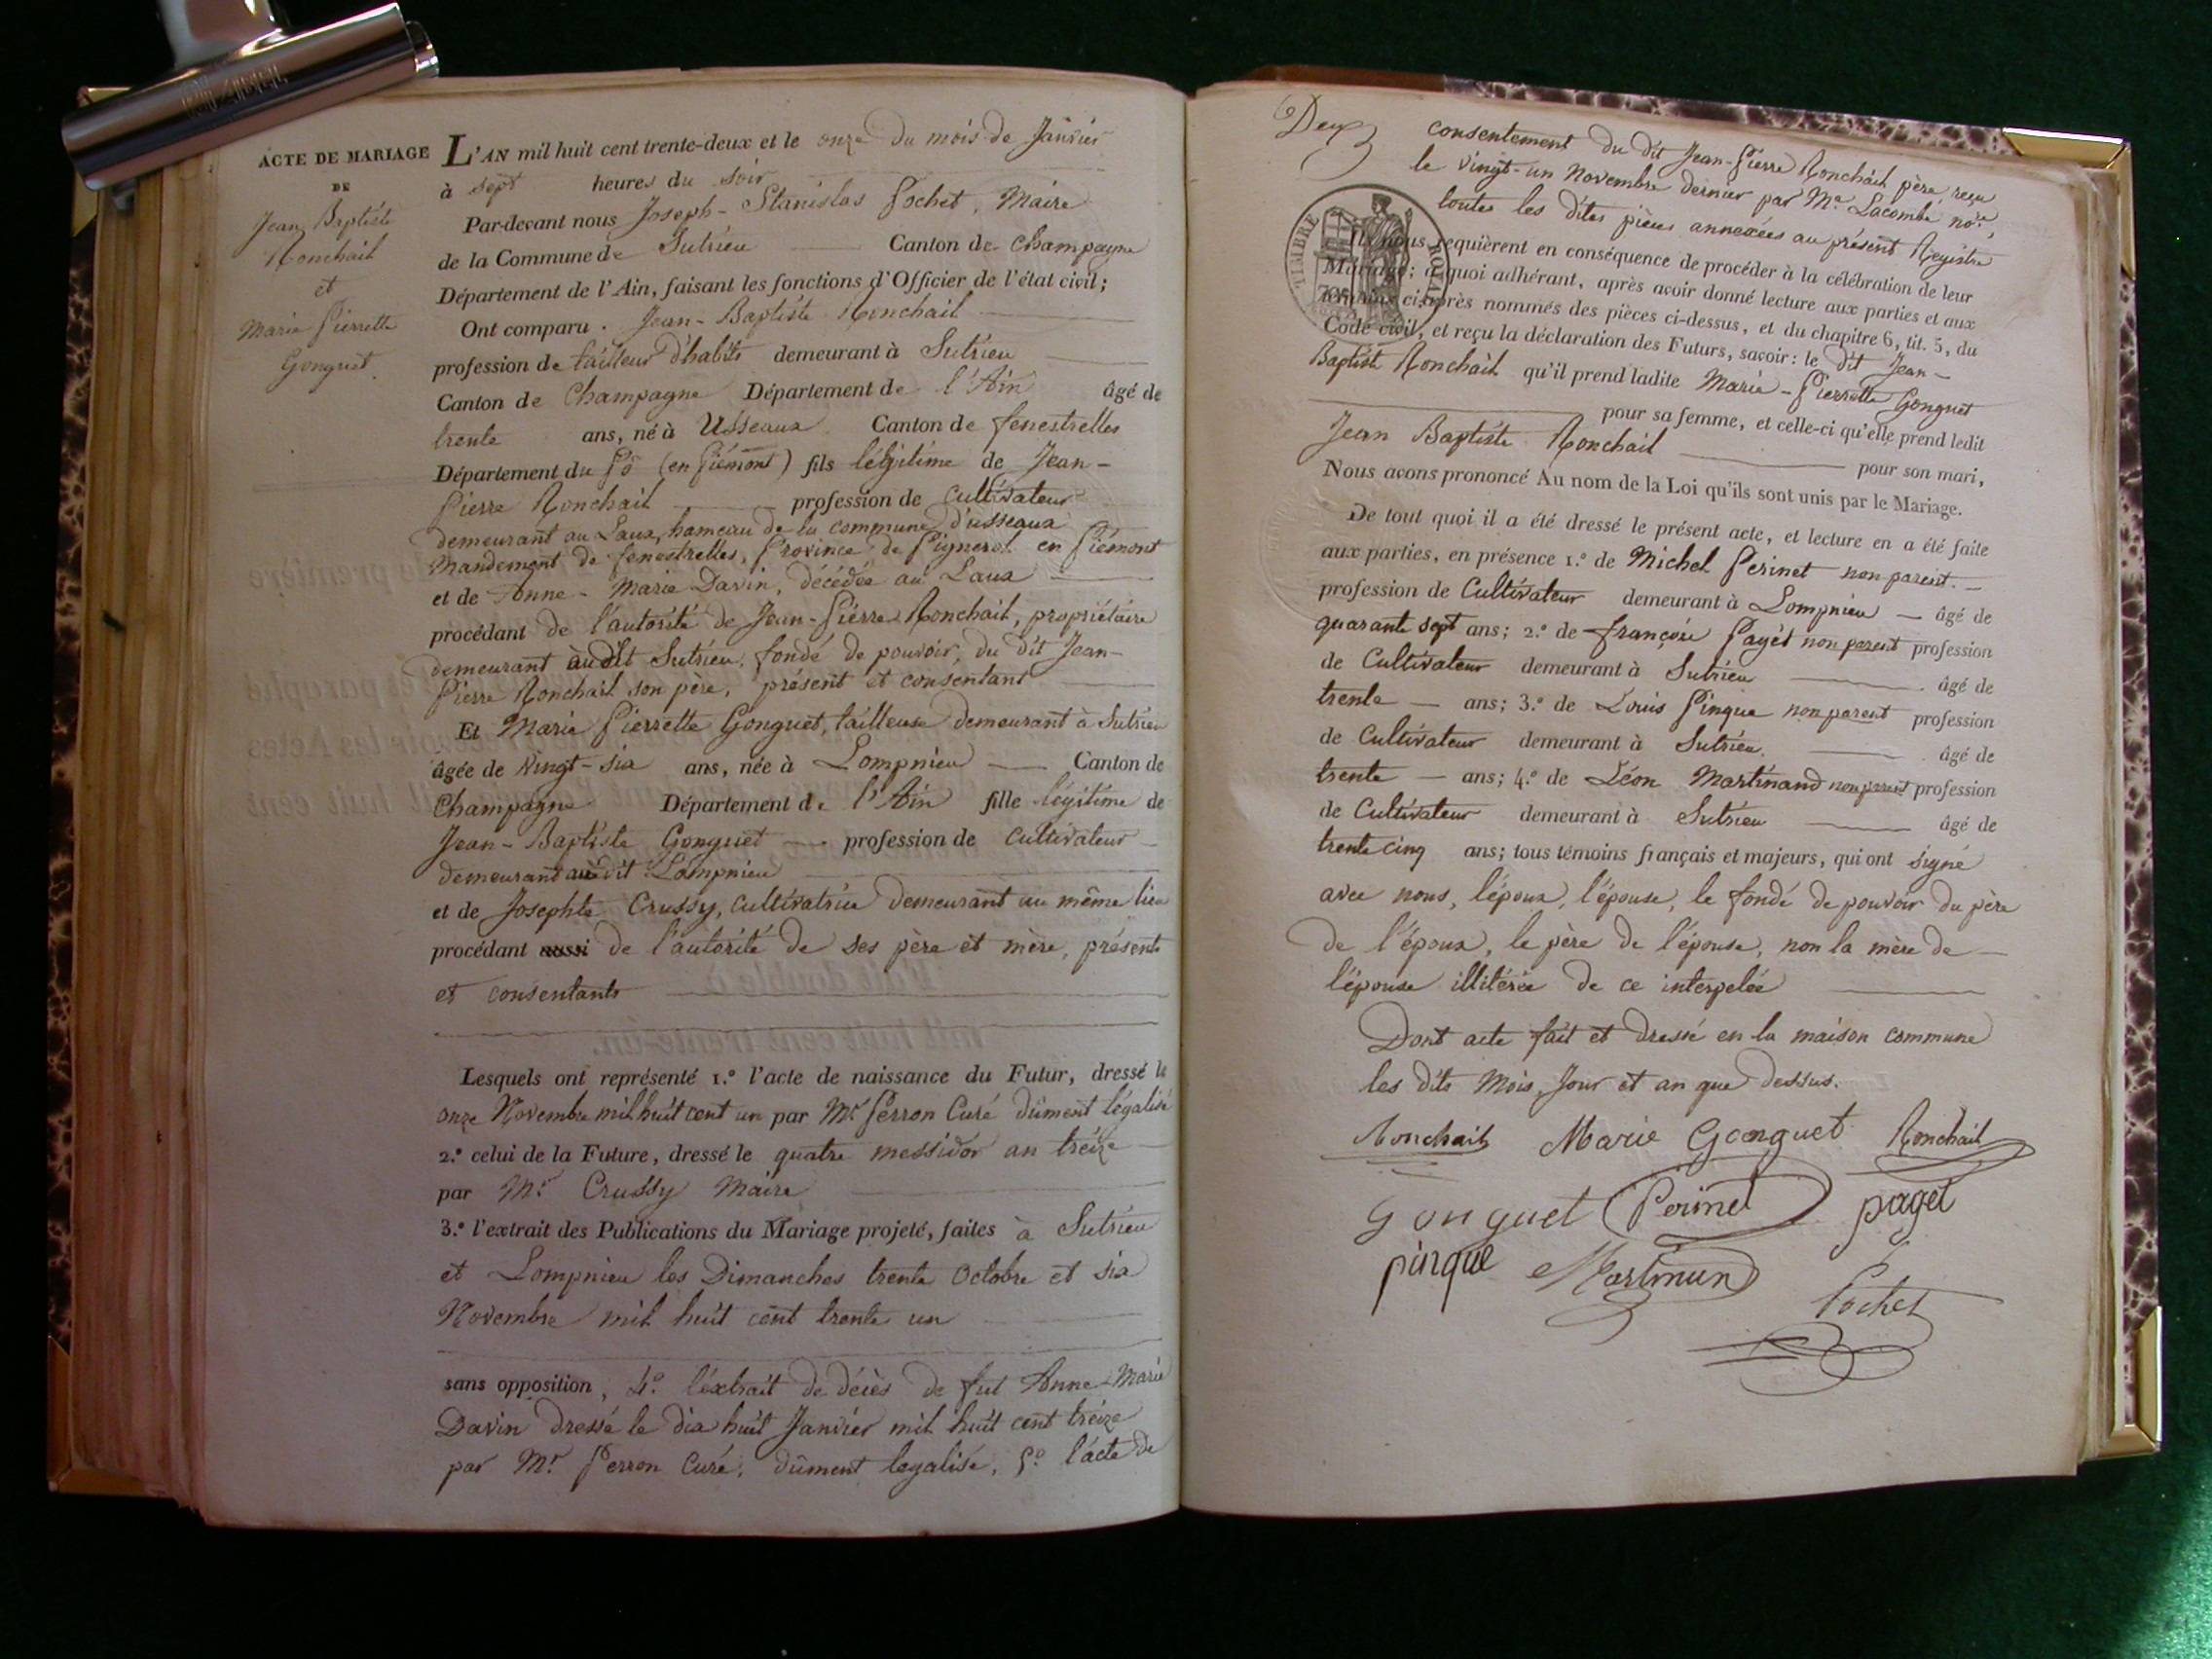 ACTE DE MARIAGE
DE
Jean Baptiste
Ronchail
et
Marie Pierrette
Gonguet
L'AN mil huit cent trente-deux et le onze du mois de Janvier
à sept heures du soir
Par-devant nous Joseph-Stanislas Pochet, Maire
de la Commune de Sutrieu Canton de Champagne
Département de l'Ain, faisant les fonctions d'Officier de l'état civil;
Ont comparu. Jean-Baptiste Ronchail
profession de tailleur d'habits demeurant à Sutrieu
Canton de Champagne Département de l'Ain âgé de
trente ans, né à Usseaux Canton de fenestrelles
Département du Pô (en Piémont) fils légitime de Jean-
Pierre Ronchail profession de cultivateur
demeurant au Laux, hameau de la commune d'usseaux
Mandement de fenestrelles, Province de Pignerol en Piémont
et de Anne-Marie Davin, décédée au Laux
procédant de l'autorité de Jean-Pierre Ronchail, propriétaire
demeurant audit Sutrieu, fondé de pouvoir, du dit Jean-
Pierre Ronchail son père, présent et consentant
Et Marie Pierrette Gonguet, tailleuse demeurant à Sutrieu
âgée de vingt-six ans, née à Lompnieu Canton de
Champagne Département de l'Ain fille légitime de
Jean-Baptiste Gonguet profession de cultivateur
demeurant au dit Lompnieu
et de Josephte Crussy, cultivatrice demeurant au même lieu
procédant aussi de l'autorité de ses père et mère, présents
et consentants
Lesquels ont représenté 1.º l'acte de naissance du Futur, dressé le
onze Novembre mil huit cent un par Mr. Perron Curé dûment légalisé
2.º celui de la Future, dressé le quatre messidor an treize
par Mr. Crussy Maire
3.º l'extrait des Publications du Mariage projeté, faites à Sutrieu
et Lompnieu les Dimanches trente Octobre et six
Novembre mil huit cent trente un
sans opposition, 4.º l'extrait de décès de fut Anne-Marie
Davin dressé le dix huit Janvier mil huit cent treize
par Mr. Perron Curé, dûment legalisé, 5.º l'acte de
Deux
consentement du dit Jean-Pierre Ronchail père reçu
le vingt-un Novembre dernier par Me. Lacombe nore,
toutes les dites pièces annexées au présent Régistre
TIMBRE ROYAL
Ils nous requièrent en conséquence de procéder à la célébration de leur
Mariage; à quoi adhérant, après avoir donné lecture aux parties et aux
Témoins ci-après nommés des pièces ci-dessus, et du chapitre 6, tit. 5, du
Code civil, et reçu la déclaration des Futurs, savoir: le dit Jean-
Baptist Ronchail qu'il prend ladite Marie-Pierrette Gonguet
pour sa femme, et celle-ci qu'elle prend ledit
Jean Baptiste Ronchail pour son mari,
Nous avons prononcé Au nom de la Loi qu'ils sont unis par le Mariage.
De tout quoi il a été dressé le présent acte, et lecture en a été faite
aux parties, en présence 1.º de Michel Perinet non parent.
profession de Cultivateur demeurant à Lompnieu âgé de
quarante sept ans; 2.º de françois Paget non parent profession
de Cultivateur demeurant à Sutrieu âgé de
trente ans; 3.º de Louis Pingue non parent profession
de Cultivateur demeurant à Sutrieu âgé de
trente ans; 4.º de Léon Martinand non parent profession
de Cultivateur demeurant à Sutrieu âgé de
trente cinq ans; tous témoins français et majeurs, qui ont signé
avec nous, l'époux, l'épouse, le fondé de pouvoir du père
de l'époux, le père de l'épouse, non la mère de
l'épouse illitérée de ce interpelée
Dont acte fait et dressé en la maison commune
les dits Mois, Jour et an que dessus.
Ronchail Marie Gonguet Ronchail
Gonguet Perinet paget
pingue Martinand
Pochet